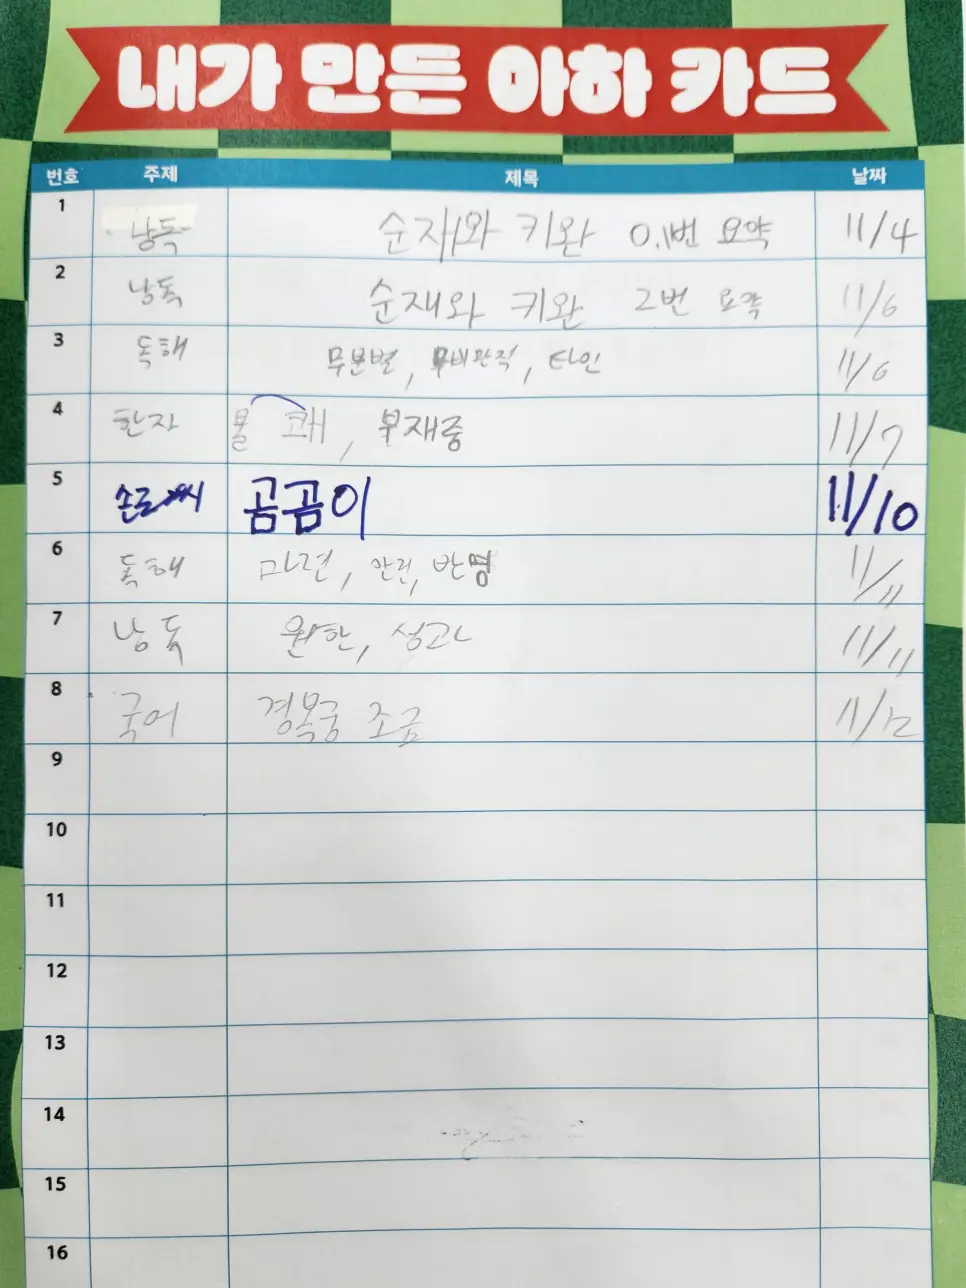 내가 만든 아하 카드
번호 주제 제목 날짜
1 낭독 순재와 키완 0,1번 요약 11/4
2 낭독 순재와 키완 2번 요약 11/6
3 독해 무분별, 무비판적, 타인 11/6
4 한자 불쾌, 부재중 11/7
5 손글씨 곰곰이 11/10
6 독해 마련, 안전, 반영 11/11
7 낭독 원한, 성과 11/11
8 국어 경복궁 조금 11/12
9
10
11
12
13
14
15
16